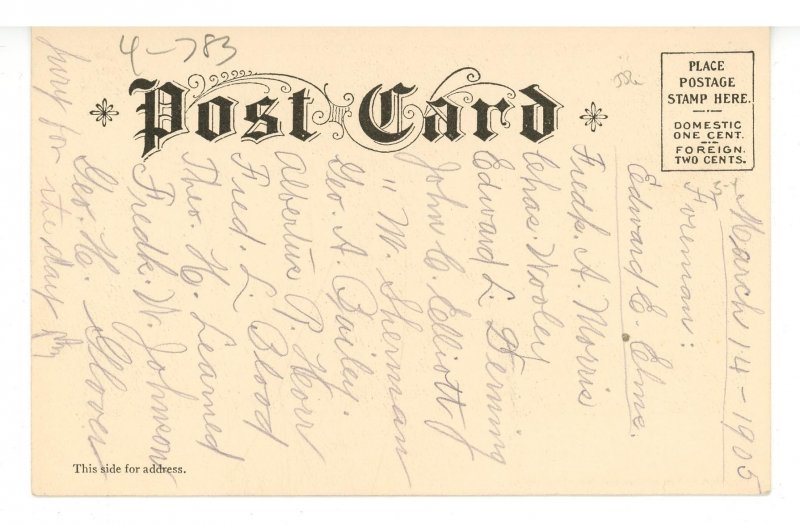 4-783
Post Card
PLACE
POSTAGE
STAMP HERE.
DOMESTIC
ONE CENT.
FOREIGN.
TWO CENTS.
March 14-1905
Foreman:
Edward C. Elms.
Fredk. A. Morris
Chas. Wooley
Edward L. Deming
John C. Elliott
" M. Sherman
Geo. A. Bailey.
Albertus P. Horr
Fred. L. Blood
Theo. H. Learned
Fredk. W. Johnson
Geo. H. Glover
Jury for the day
This side for address.